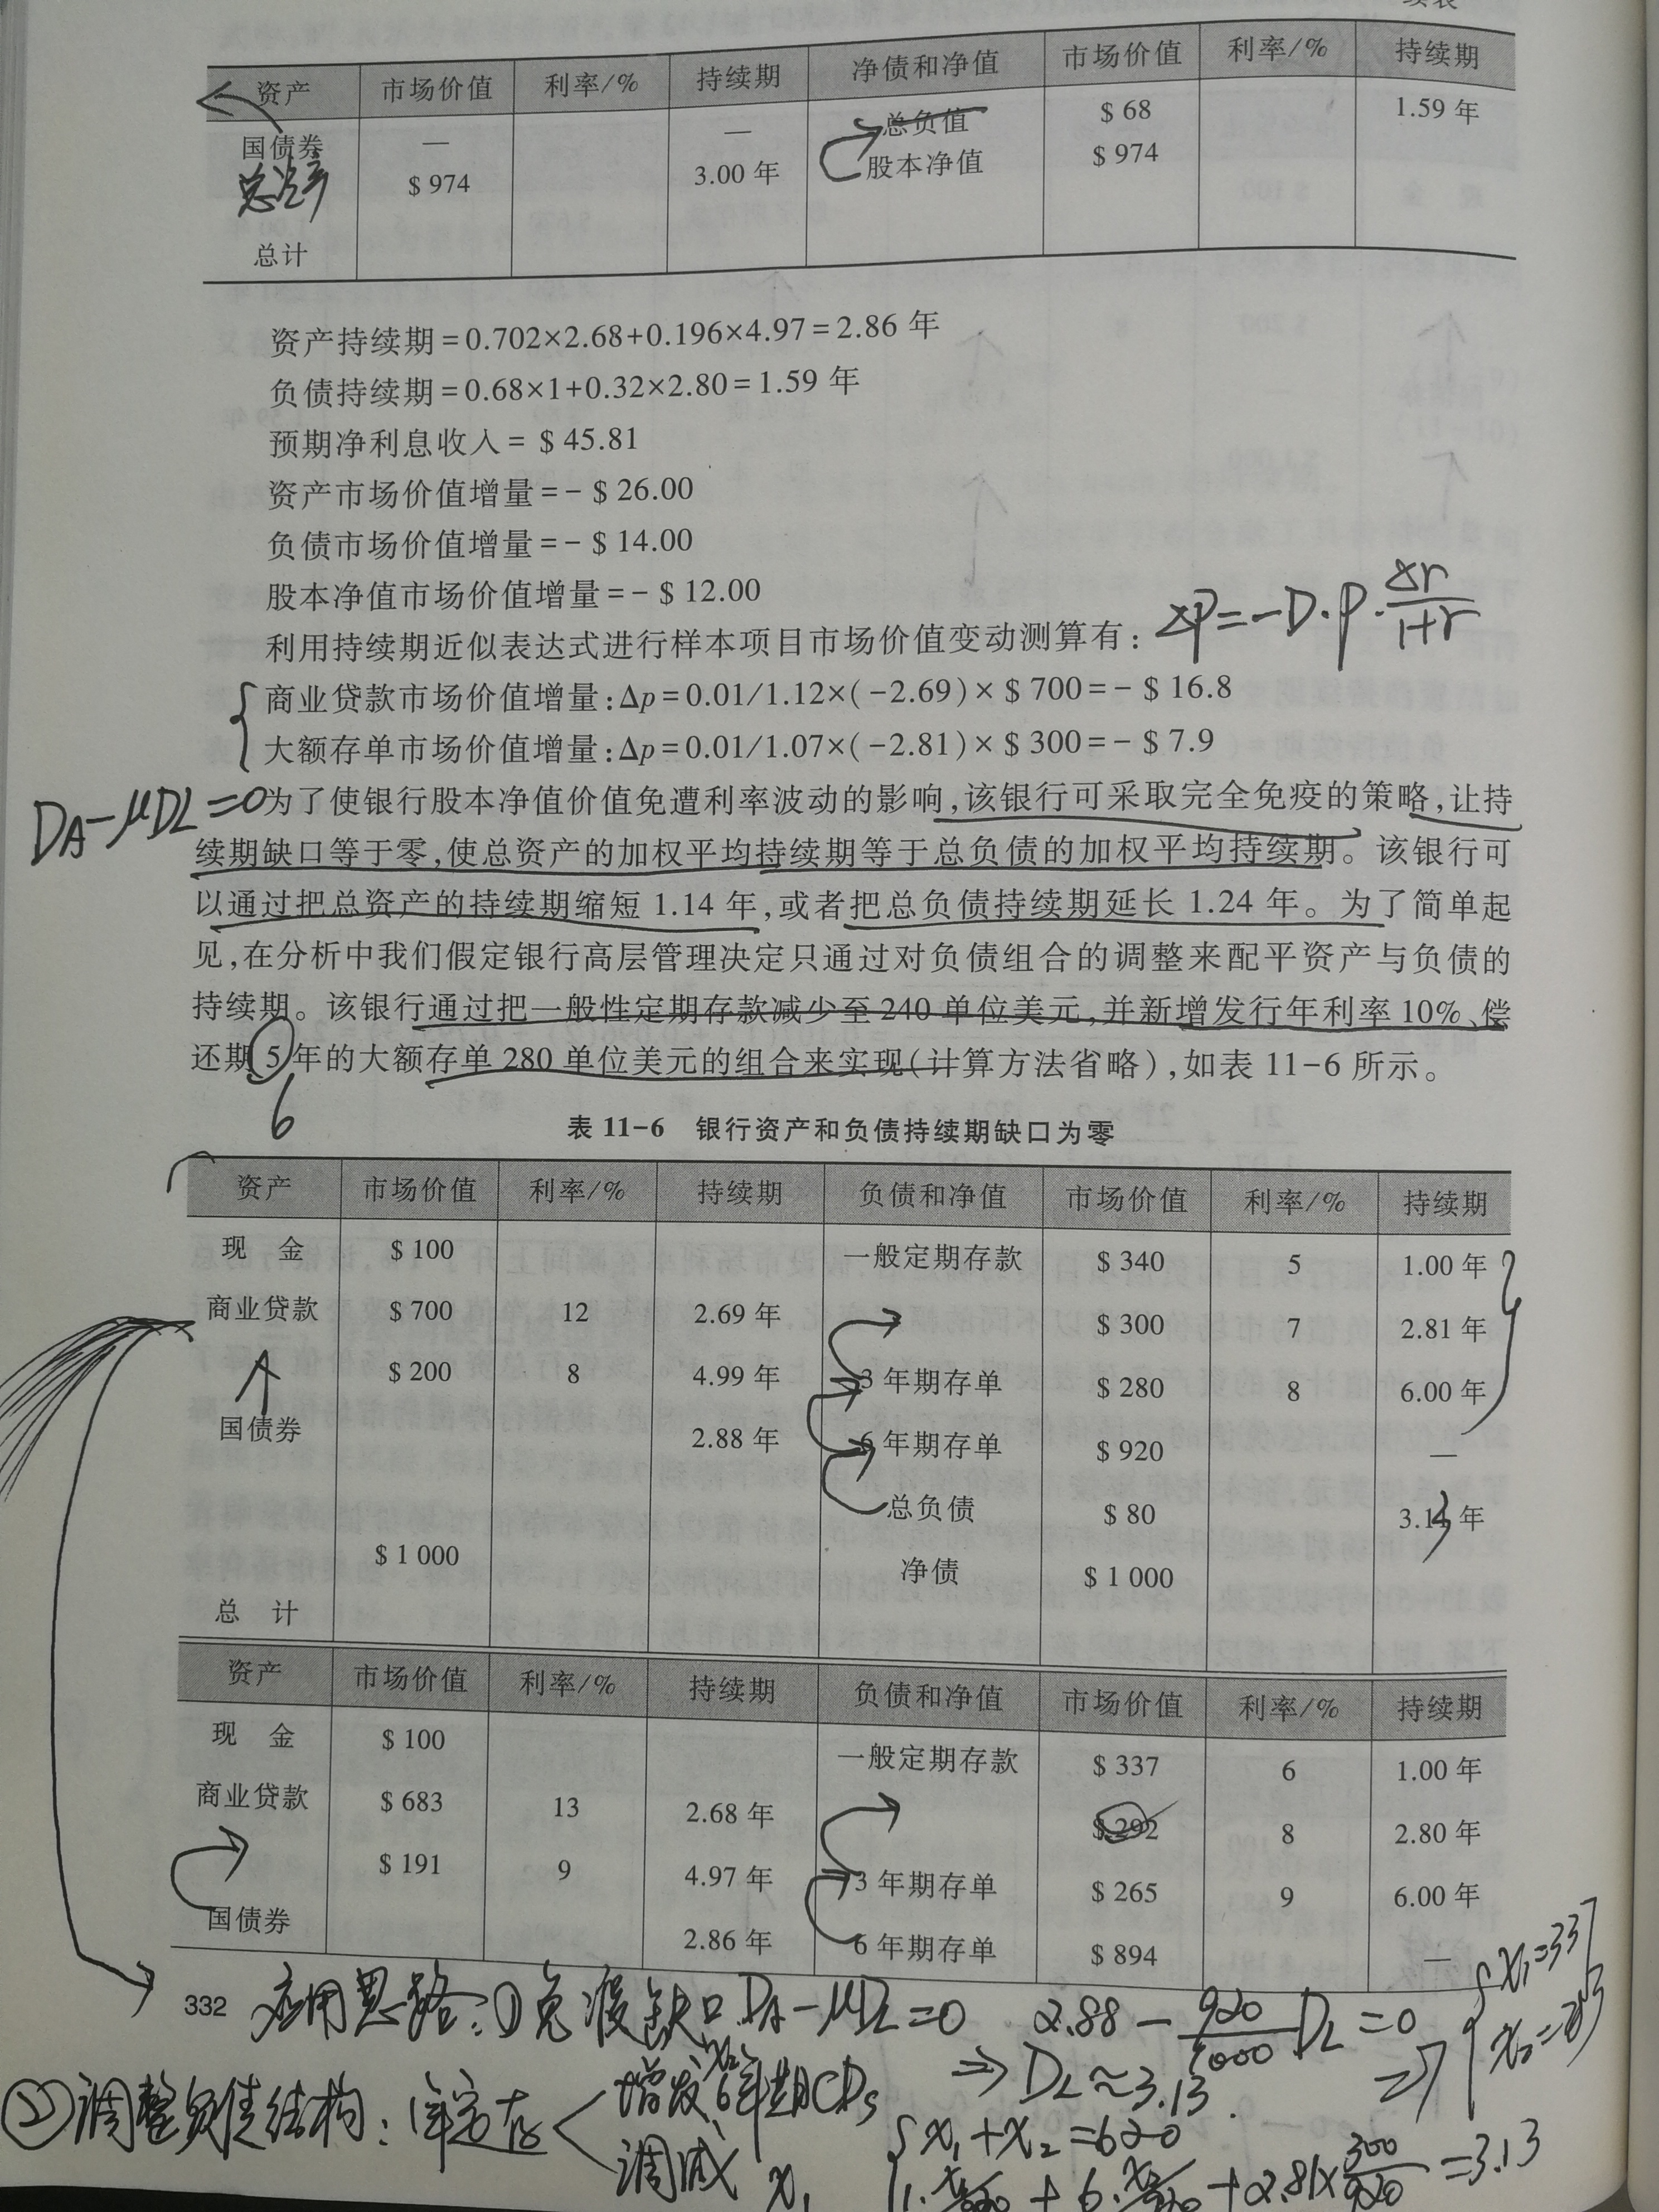 续表
资产 市场价值 利率/% 持续期 净债和净值 市场价值 利率/% 持续期
国债券 — — 总负值 $ 68 1.59 年
总资产 $ 974 3.00 年 股本净值 $ 974
总计
资产持续期=0.702×2.68+0.196×4.97=2.86 年
负债持续期=0.68×1+0.32×2.80=1.59 年
预期净利息收入= $ 45.81
资产市场价值增量=- $ 26.00
负债市场价值增量=- $ 14.00
股本净值市场价值增量=- $ 12.00
利用持续期近似表达式进行样本项目市场价值变动测算有:
ΔP=-D·P·Δr/1+r
商业贷款市场价值增量:Δp=0.01/1.12×(-2.69)× $ 700=- $ 16.8
大额存单市场价值增量:Δp=0.01/1.07×(-2.81)× $ 300=- $ 7.9
DA-μDL=0
为了使银行股本净值价值免遭利率波动的影响,该银行可采取完全免疫的策略,让持
续期缺口等于零,使总资产的加权平均持续期等于总负债的加权平均持续期。该银行可
以通过把总资产的持续期缩短 1.14 年,或者把总负债持续期延长 1.24 年。为了简单起
见,在分析中我们假定银行高层管理决定只通过对负债组合的调整来配平资产与负债的
持续期。该银行通过把一般性定期存款减少至 240 单位美元,并新增发行年利率 10%、偿
还期 5 年的大额存单 280 单位美元的组合来实现(计算方法省略),如表 11-6 所示。
6
表 11-6 银行资产和负债持续期缺口为零
资产 市场价值 利率/% 持续期 负债和净值 市场价值 利率/% 持续期
现 金 $ 100 一般定期存款 $ 340 5 1.00 年
商业贷款 $ 700 12 2.69 年 $ 300 7 2.81 年
$ 200 8 4.99 年 3 年期存单 $ 280 8 6.00 年
国债券 2.88 年 6 年期存单 $ 920 —
总负债 $ 80 3.13 年
$ 1 000 净债 $ 1 000
总 计
资产 市场价值 利率/% 持续期 负债和净值 市场价值 利率/% 持续期
现 金 $ 100 一般定期存款 $ 337 6 1.00 年
商业贷款 $ 683 13 2.68 年 $ 292 8 2.80 年
$ 191 9 4.97 年 3 年期存单 $ 265 9 6.00 年
国债券 2.86 年 6 年期存单 $ 894 —
332
应用思路:①免疫缺口DA-μDL=0 2.88-920/1000DL=0
⇒DL≈3.13
②调整负债结构:
增发6年期CDs
调减 x₁
x₁+x₂=620
+2.81×300/920=3.13
x₁=337